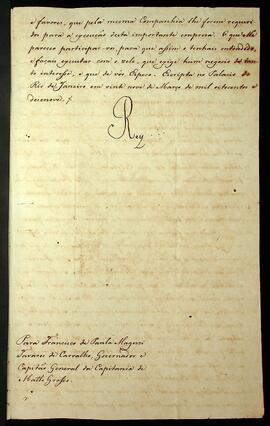 e favores, que pela mesma Companhia lhe forem requeri-
dos para a execução desta importante empreza. O que Me
pareceo participar-vos, para que assim o tenhais entendido,
e façais executar com o zelo, que exige hum negocio de tan-
to interesse, e que de vós Espero. Escripta no Palacio do
Rio de Janeiro em vinte nove de Março de mil oitocentos e
dezenove.
Rey
Para Francisco de Paula Magessi
Tavares de Carvalho, Governador e
Capitão General da Capitania de
Matto Grosso.